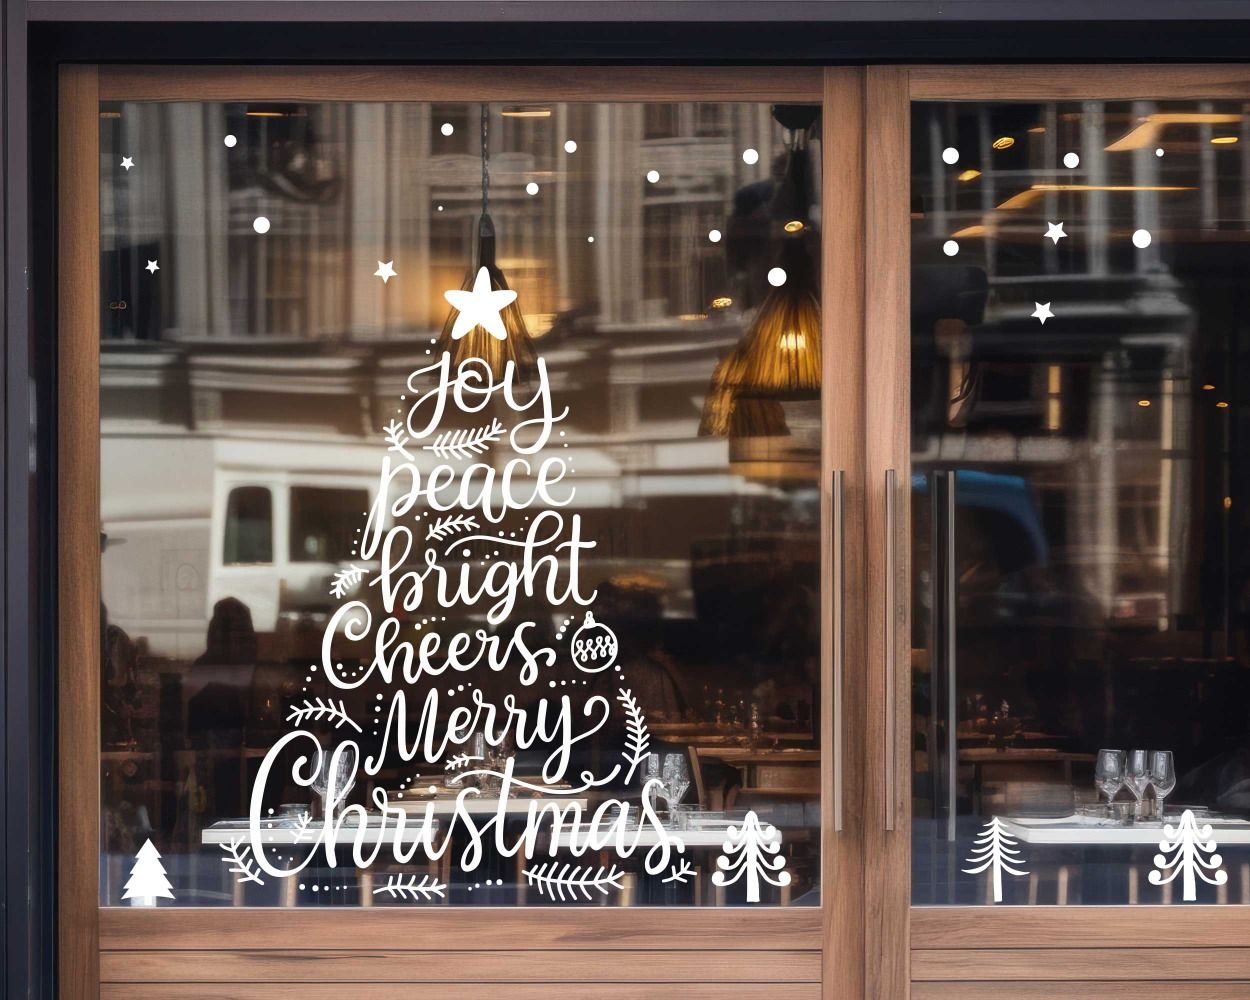 Joy
peace
bright
Cheers
Merry
Christmas